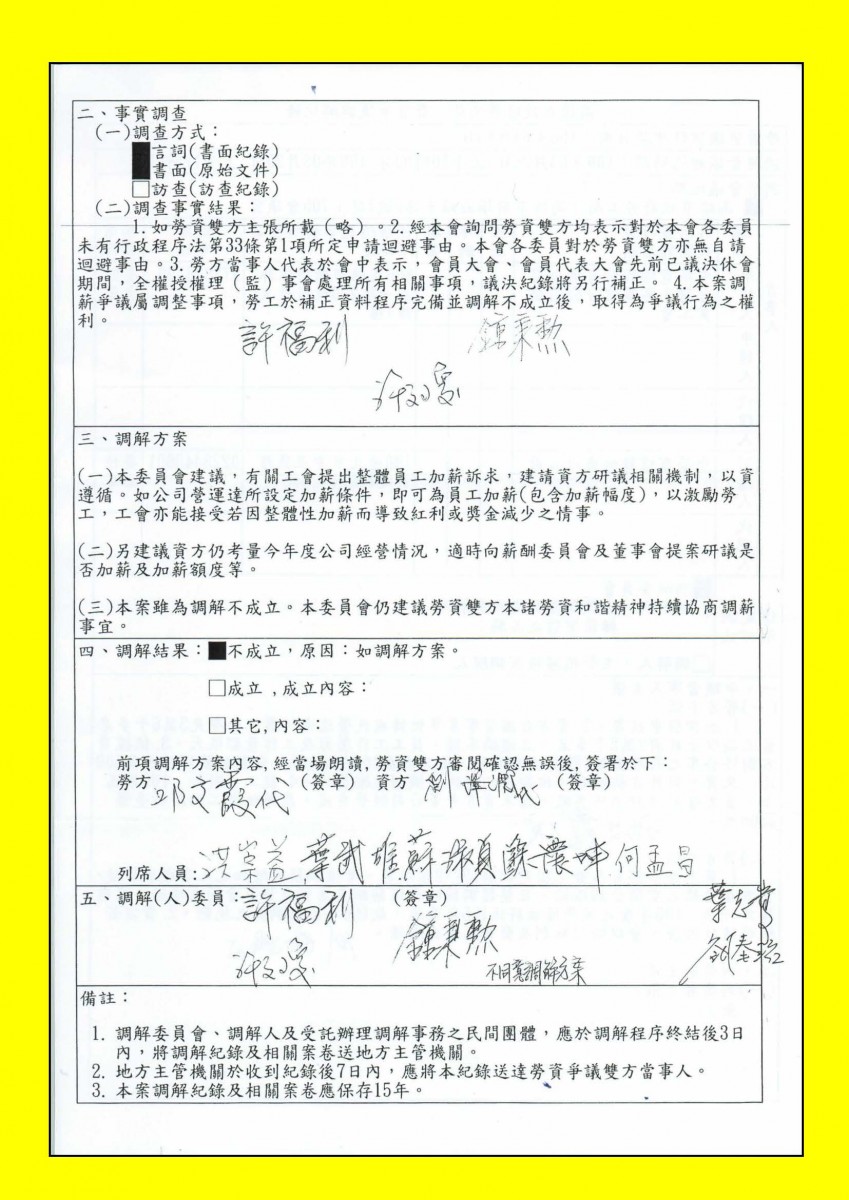 二、事實調查
(一)調查方式：
■言詞(書面紀錄)
■書面(原始文件)
□訪查(訪查紀錄)
(二)調查事實結果：
1.如勞資雙方主張所載（略）。2.經本會詢問勞資雙方均表示對於本會各委員
未有行政程序法第33條第1項所定申請迴避事由。本會各委員對於勞資雙方亦無自請
迴避事由。3.勞方當事人代表於會中表示，會員大會、會員代表大會先前已議決休會
期間，全權授權理（監）事會處理所有相關事項，議決紀錄將另行補正。 4.本案調
薪爭議屬調整事項，勞工於補正資料程序完備並調解不成立後，取得為爭議行為之權
利。
許福利 鍾秉勲
三、調解方案
(一)本委員會建議，有關工會提出整體員工加薪訴求，建請資方研議相關機制，以資
遵循。如公司營運達所設定加薪條件，即可為員工加薪(包含加薪幅度)，以激勵勞
工，工會亦能接受若因整體性加薪而導致紅利或獎金減少之情事。
(二)另建議資方仍考量今年度公司經營情況，適時向薪酬委員會及董事會提案研議是
否加薪及加薪額度等。
(三)本案雖為調解不成立。本委員會仍建議勞資雙方本諸勞資和諧精神持續協商調薪
事宜。
四、調解結果：■不成立，原因：如調解方案。
□成立 ,成立內容：
□其它,內容：
前項調解方案內容,經當場朗讀,勞資雙方審閱確認無誤後,簽署於下：
勞方 邱文霞代 (簽章) 資方 (簽章)
列席人員:洪崇益 葉武雄 蘇淑貞 何孟昌
五、調解(人)委員：許福利 (簽章)
鍾秉勲
不同意調解方案
備註：
1. 調解委員會、調解人及受託辦理調解事務之民間團體，應於調解程序終結後3日
內，將調解紀錄及相關案卷送地方主管機關。
2. 地方主管機關於收到紀錄後7日內，應將本紀錄送達勞資爭議雙方當事人。
3. 本案調解紀錄及相關案卷應保存15年。